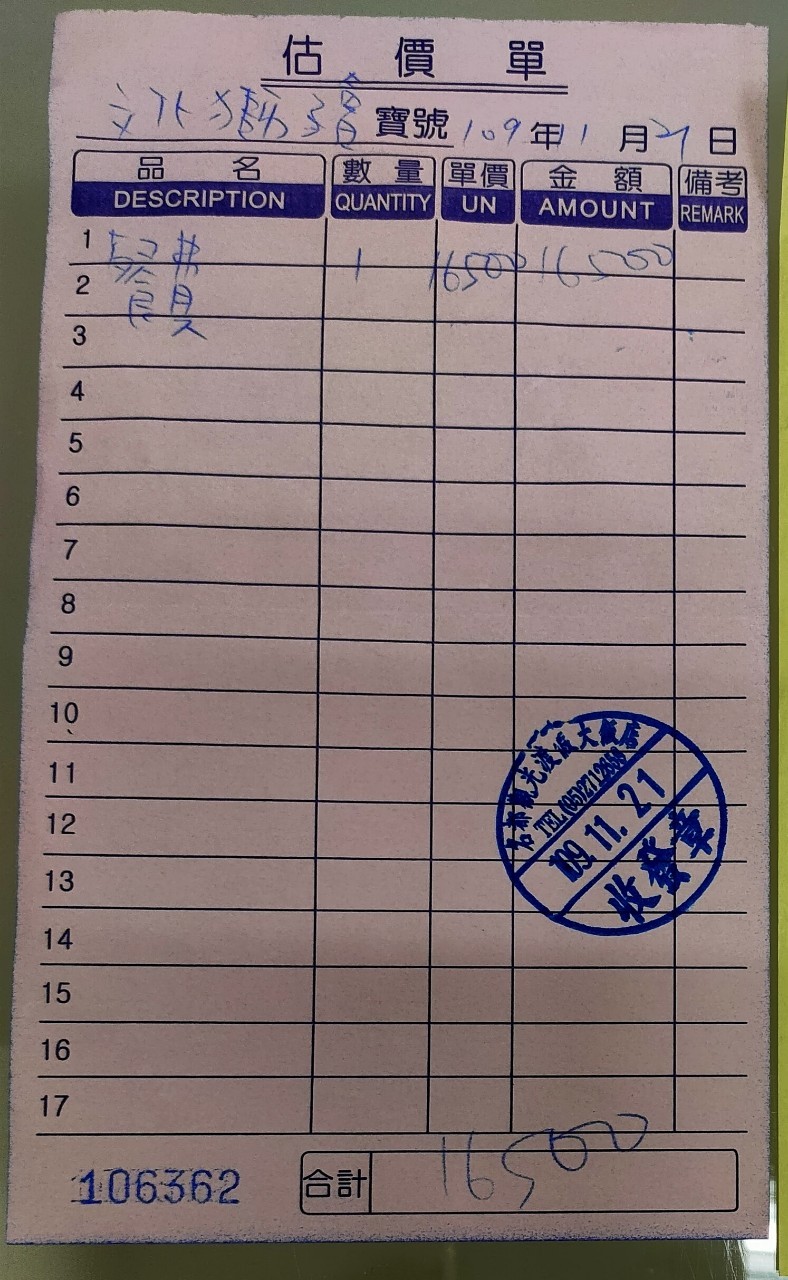 估價單
寶號 109年11月21日
品名 數量 單價 金額 備考
DESCRIPTION QUANTITY UN AMOUNT REMARK
1 餐費 1 16500 16500
2
3
4
5
6
7
8
9
10
11
12
13
14
15
16
17
名都觀光渡假大飯店
TEL(05)2712658
109. 11. 21
收發章
106362 合計 16500